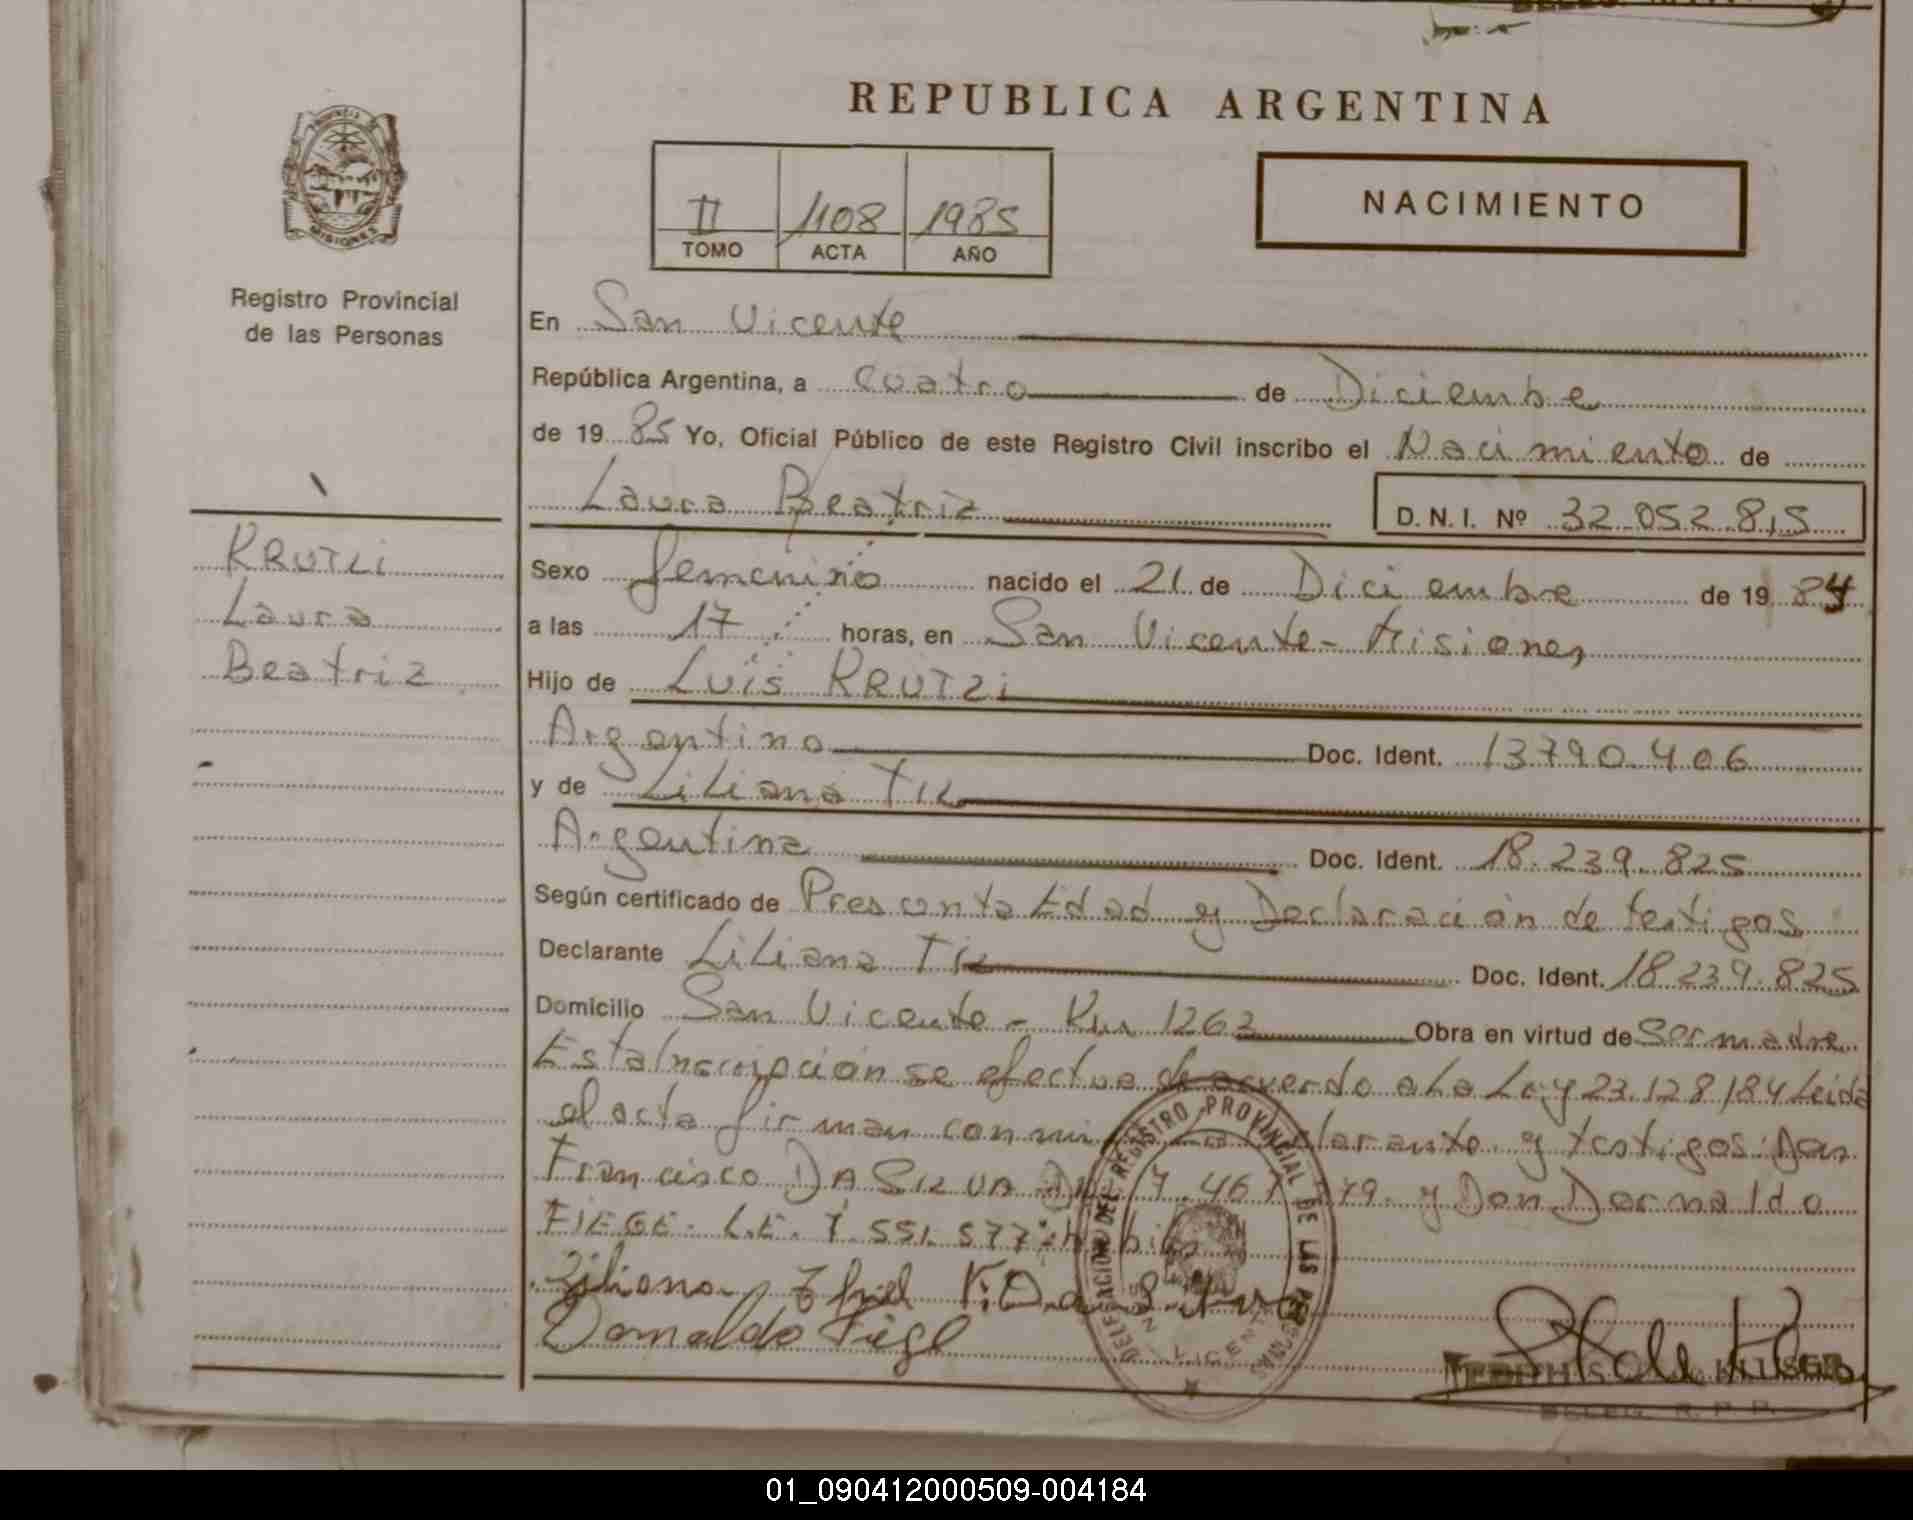 REPUBLICA ARGENTINA
PROVINCIA DE MISIONES
Registro Provincial
de las Personas
II 1108 1985
TOMO ACTA AÑO
NACIMIENTO
En San Vicente
República Argentina, a Cuatro de Diciembre
de 1985 Yo, Oficial Público de este Registro Civil inscribo el Nacimiento de
Laura Beatriz D.N.I. Nº 32.052.815
KRUTZi
Laura
Beatriz
Sexo femenino nacido el 21 de Diciembre de 1984
a las 17 horas, en San Vicente - Misiones
Hijo de Luis KRUTZi
Argentino Doc. Ident. 13790.406
y de Liliana
Argentina Doc. Ident. 18.239.825
Según certificado de Presunta Edad y Declaración de testigos
Declarante Liliana Doc. Ident. 18.239.825
Domicilio San Vicente - Km 1263 Obra en virtud de Ser madre
Esta Inscripción se efectua de acuerdo a la Ley 23.128/84 Leida
el acta firman conmi declarante y testigos: Don
Francisco DA SILVA 7.467.779. y Don Dornaldo
FIEGE. L.E. 7.551.577
Liliana F. Da Silva
Dornaldo Fiege
DELEGACION DEL REGISTRO PROVINCIAL DE LAS PERSONAS
SAN VICENTE
DELEG. R. P. P.
01_090412000509-004184